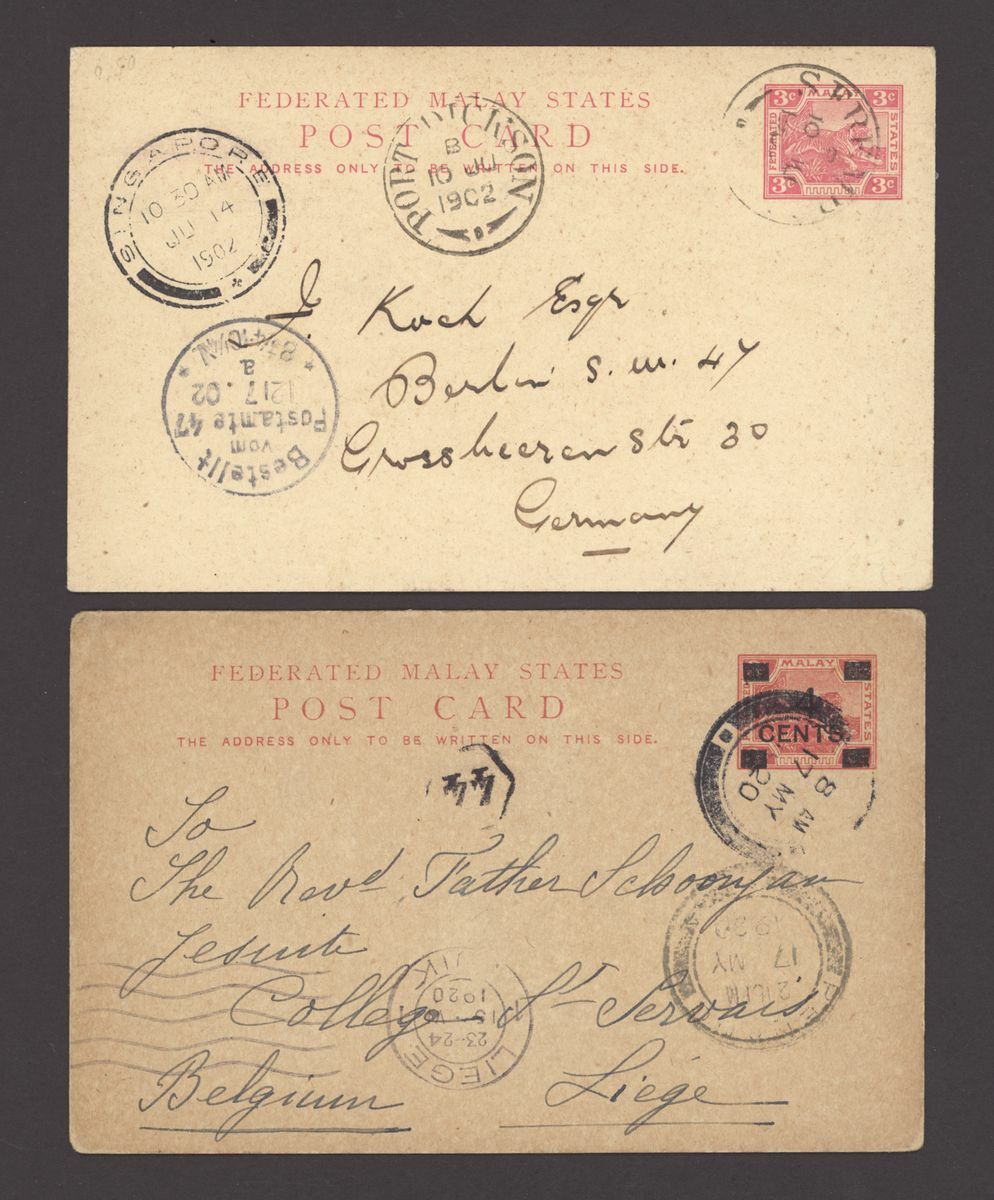 FEDERATED MALAY STATES
POST CARD
THE ADDRESS ONLY TO BE WRITTEN ON THIS SIDE.
3c MALAY 3c
FEDERATED STATES
3c 3c
SINGAPORE
10 30 AM
JU 14
1902
PORT DICKSON
B
10 JU
1902
J. Koch Esqr
Berlin S.W. 47
Grossbeeren Str 30
Germany
Bestellt
vom
Postamte 47
12/7.02
a
FEDERATED MALAY STATES
POST CARD
THE ADDRESS ONLY TO BE WRITTEN ON THIS SIDE.
MALAY
STATES
4
CENTS.
8 AM
17 MY
20
To
The Revd Father Schoonjan
Jesuite
College St Servais
Belgium Liége
PERAK
17 MY
1920
LIEGE
23-24
1920